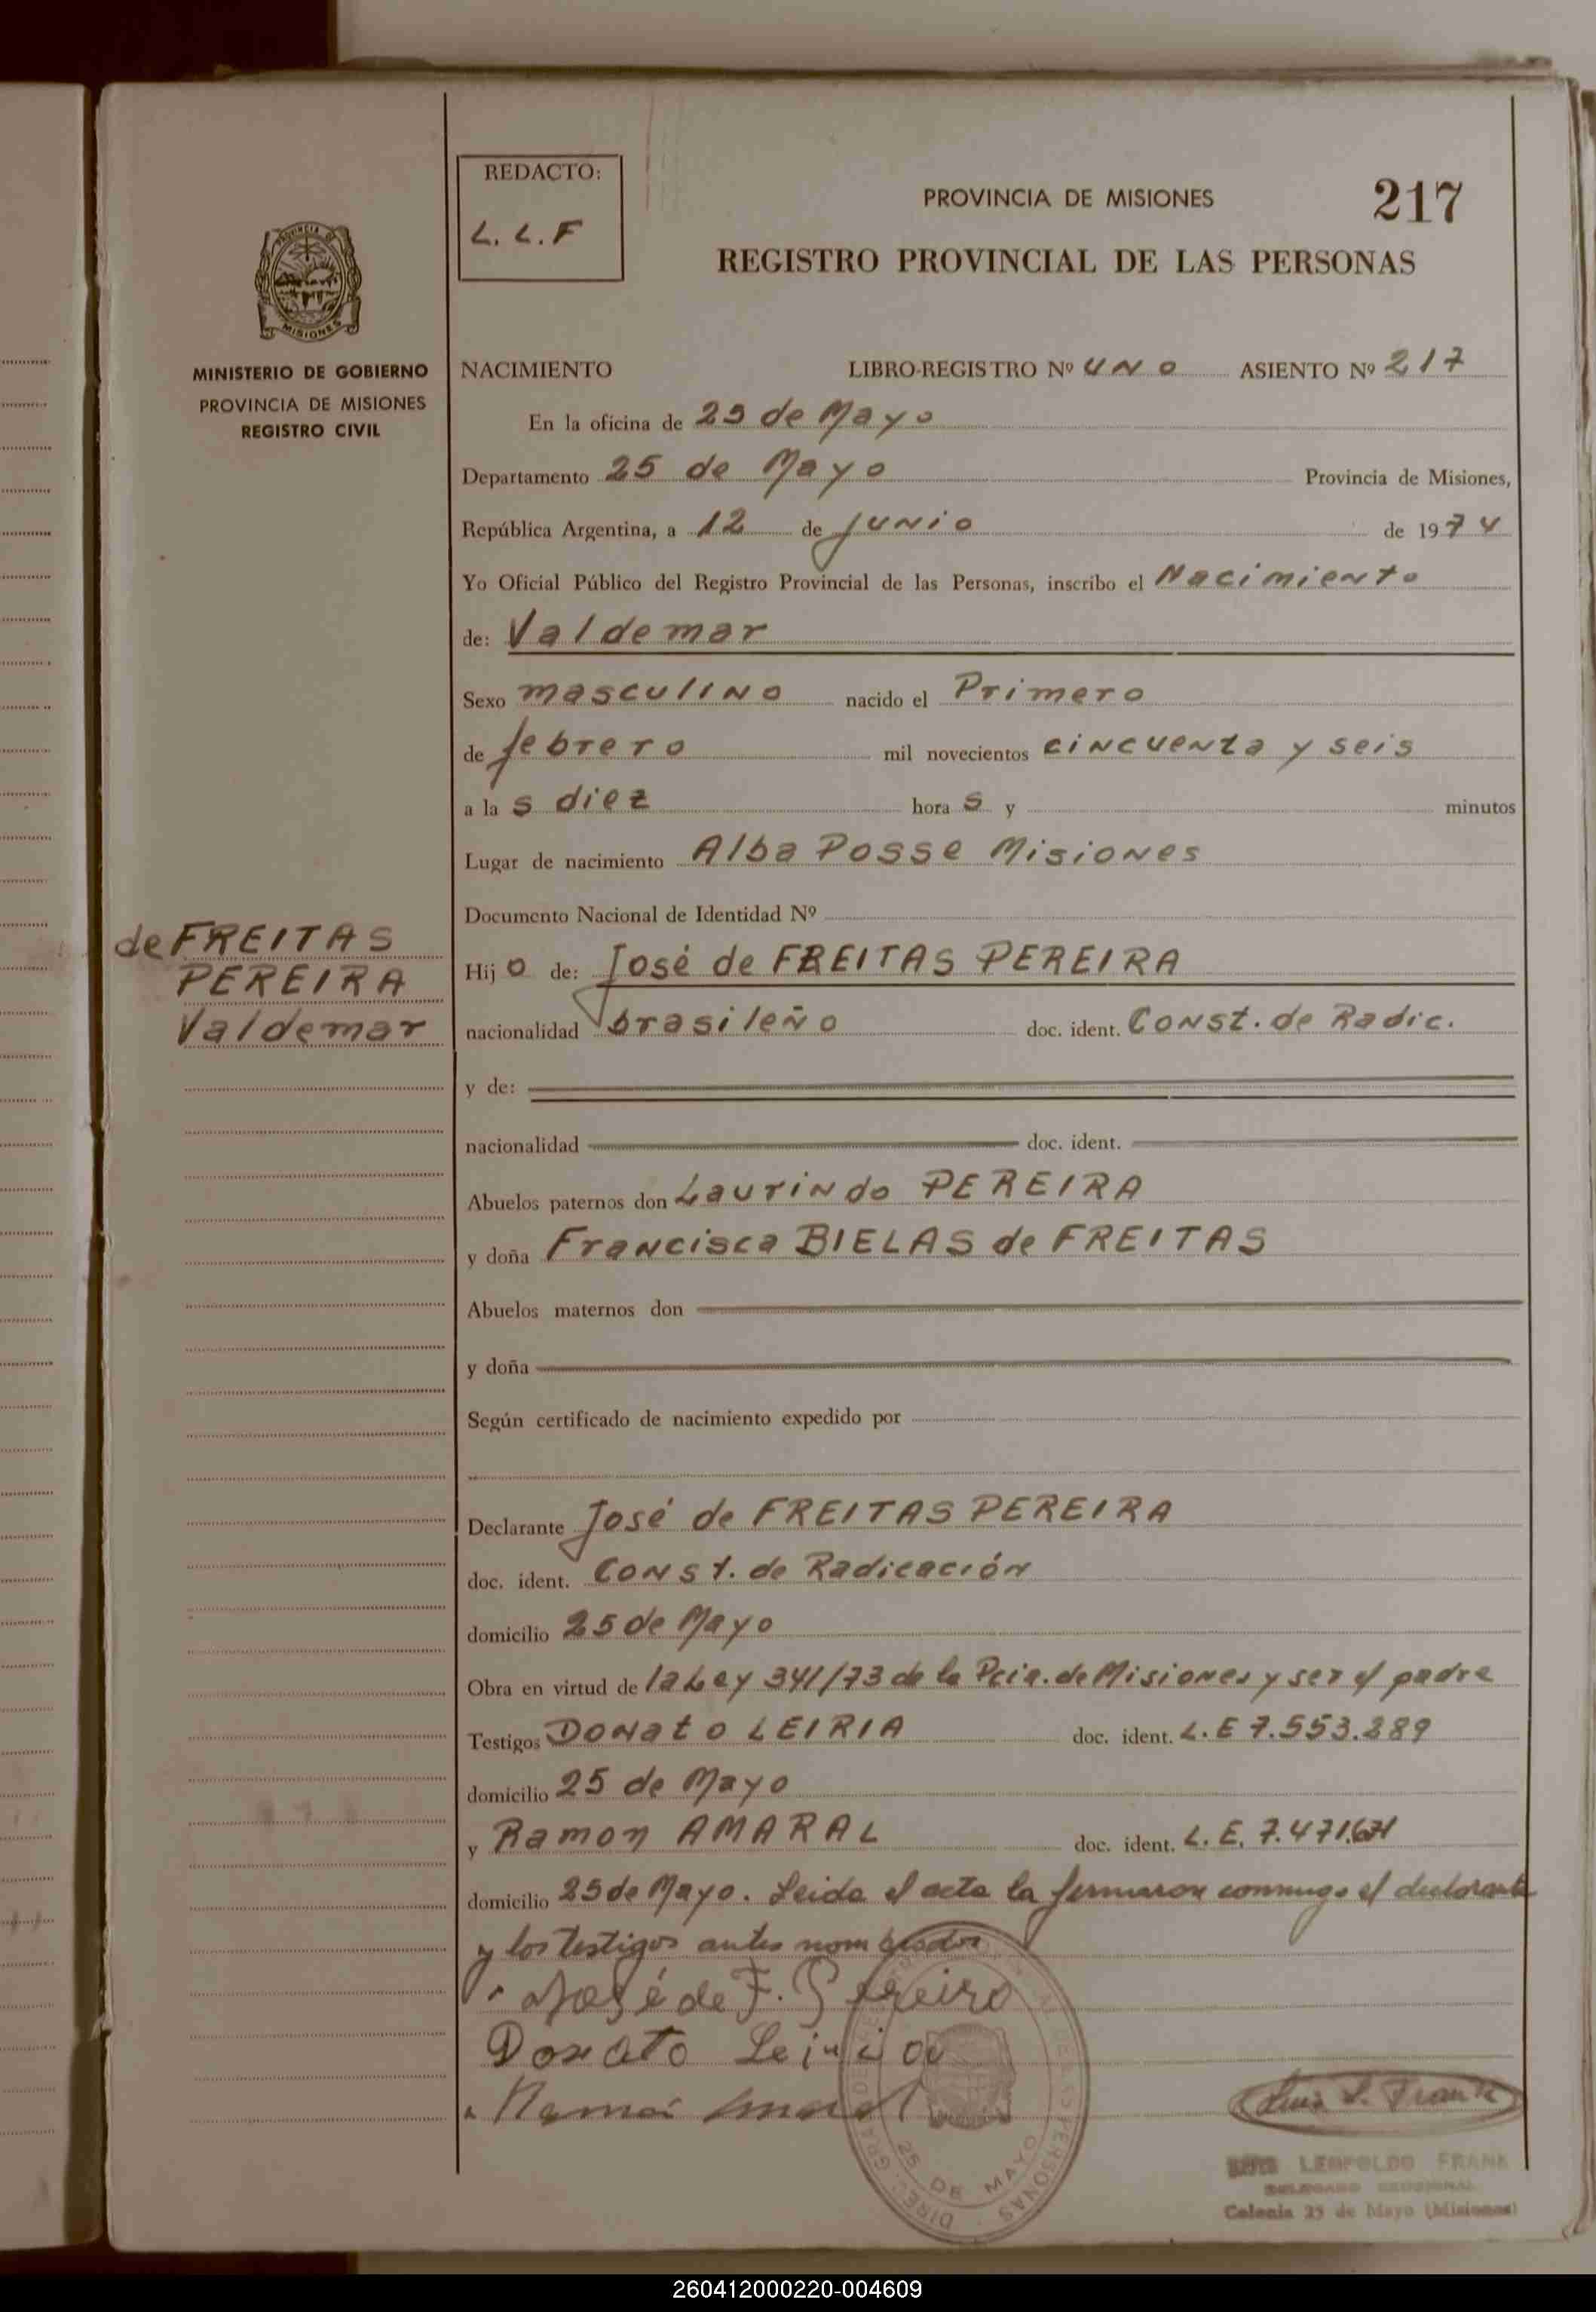 REDACTO:
L. L. F
PROVINCIA DE MISIONES
217
REGISTRO PROVINCIAL DE LAS PERSONAS
MISIONES
MINISTERIO DE GOBIERNO
PROVINCIA DE MISIONES
REGISTRO CIVIL
NACIMIENTO LIBRO-REGISTRO Nº UNO ASIENTO Nº 217
En la oficina de 25 de Mayo
Departamento 25 de Mayo Provincia de Misiones,
República Argentina, a 12 de junio de 1974
Yo Oficial Público del Registro Provincial de las Personas, inscribo el Nacimiento
de: Valdemar
Sexo masculino nacido el Primero
de febrero mil novecientos cincuenta y seis
a las diez horas y minutos
Lugar de nacimiento Alba Posse Misiones
Documento Nacional de Identidad Nº
de FREITAS
PEREIRA
Valdemar
Hijo de: José de FREITAS PEREIRA
nacionalidad brasileño doc. ident. Const. de Radic.
y de:
nacionalidad doc. ident.
Abuelos paternos don Laurindo PEREIRA
y doña Francisca BIELAS de FREITAS
Abuelos maternos don
y doña
Según certificado de nacimiento expedido por
Declarante José de FREITAS PEREIRA
doc. ident. Const. de Radicación
domicilio 25 de Mayo
Obra en virtud de la Ley 341/73 de la Pcia. de Misiones y ser el padre
Testigos Donato LEIRIA doc. ident. L. E 7.553.289
domicilio 25 de Mayo
y Ramon AMARAL doc. ident. L. E. 7.471.671
domicilio 25 de Mayo. Leida el acta la firmaron conmigo el declarante
y los testigos antes nombrados
José de F. Pereira
Donato Leiria
Ramon Amaral
Luis L. Frank
25 DE MAYO
LUIS LEOPOLDO FRANK
DELEGADO SECCIONAL
Colonia 25 de Mayo (Misiones)
260412000220-004609